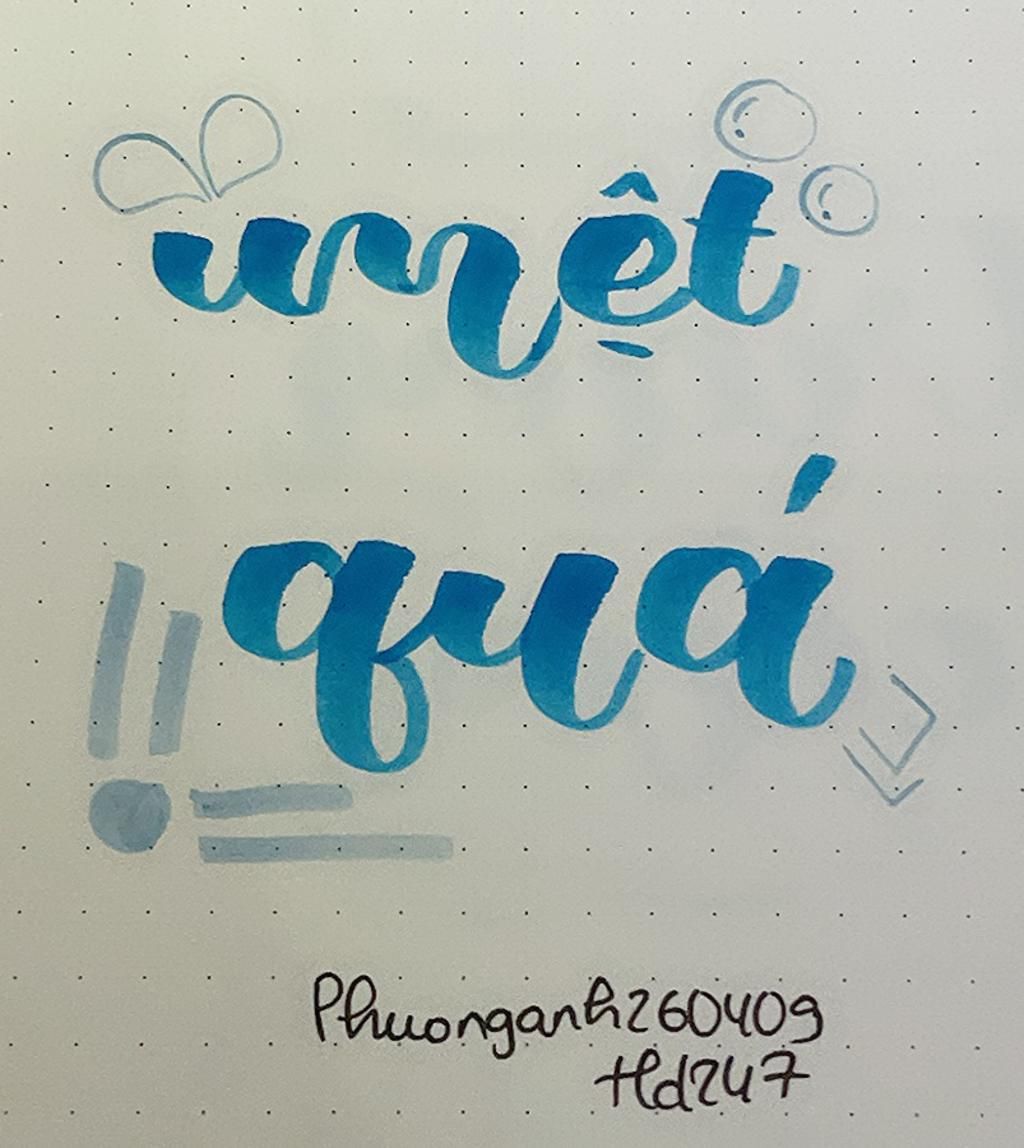 mệt
quá
Phuonganh260409
Hd247